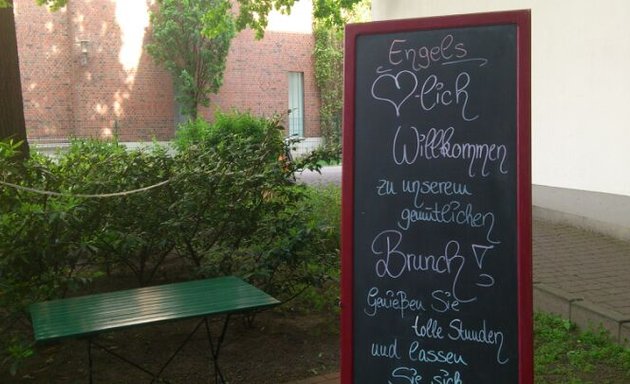 Engels
♡-lich
Willkommen
zu unserem
gemütlichen
Brunch!
Genießen Sie
tolle Stunden
und lassen
Sie sich